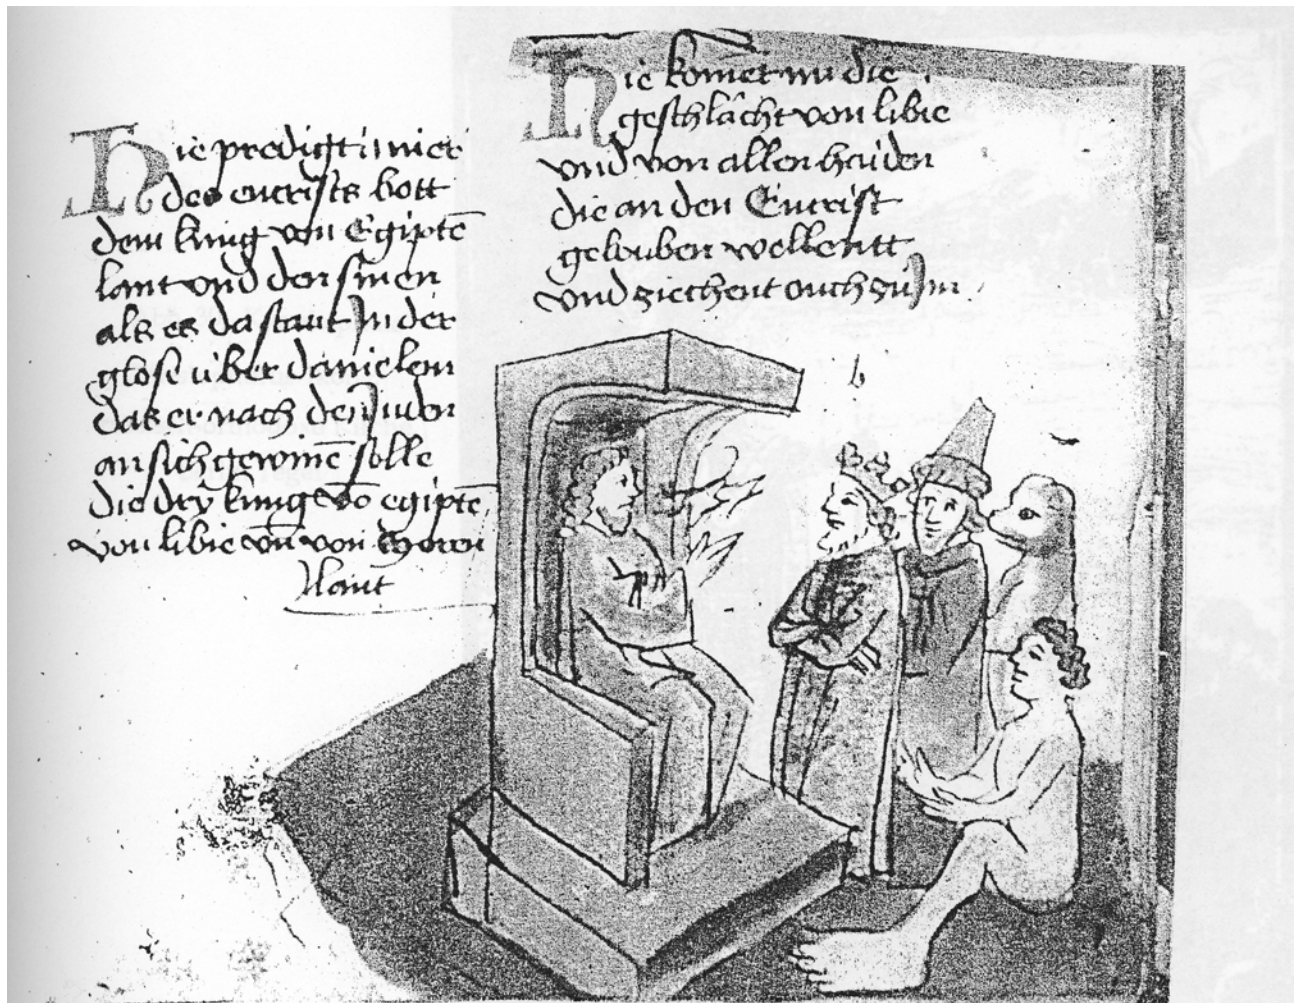 Hie predigt immer
des entcrists bott
dem kung von Egiptē
lant vnd den sinen
als es da staut Jn der
glose über danielem
das er nach den Juden
an sich gewinē solle
die drÿ kung vō egiptē
von libie vn̄ von Moren
lant
Hie komēt nu die
geschlächt von libie
vnd von allen haiden
die an den Entcrist
gelouben wellentt
vnd ziechent ouch zu Jm
b